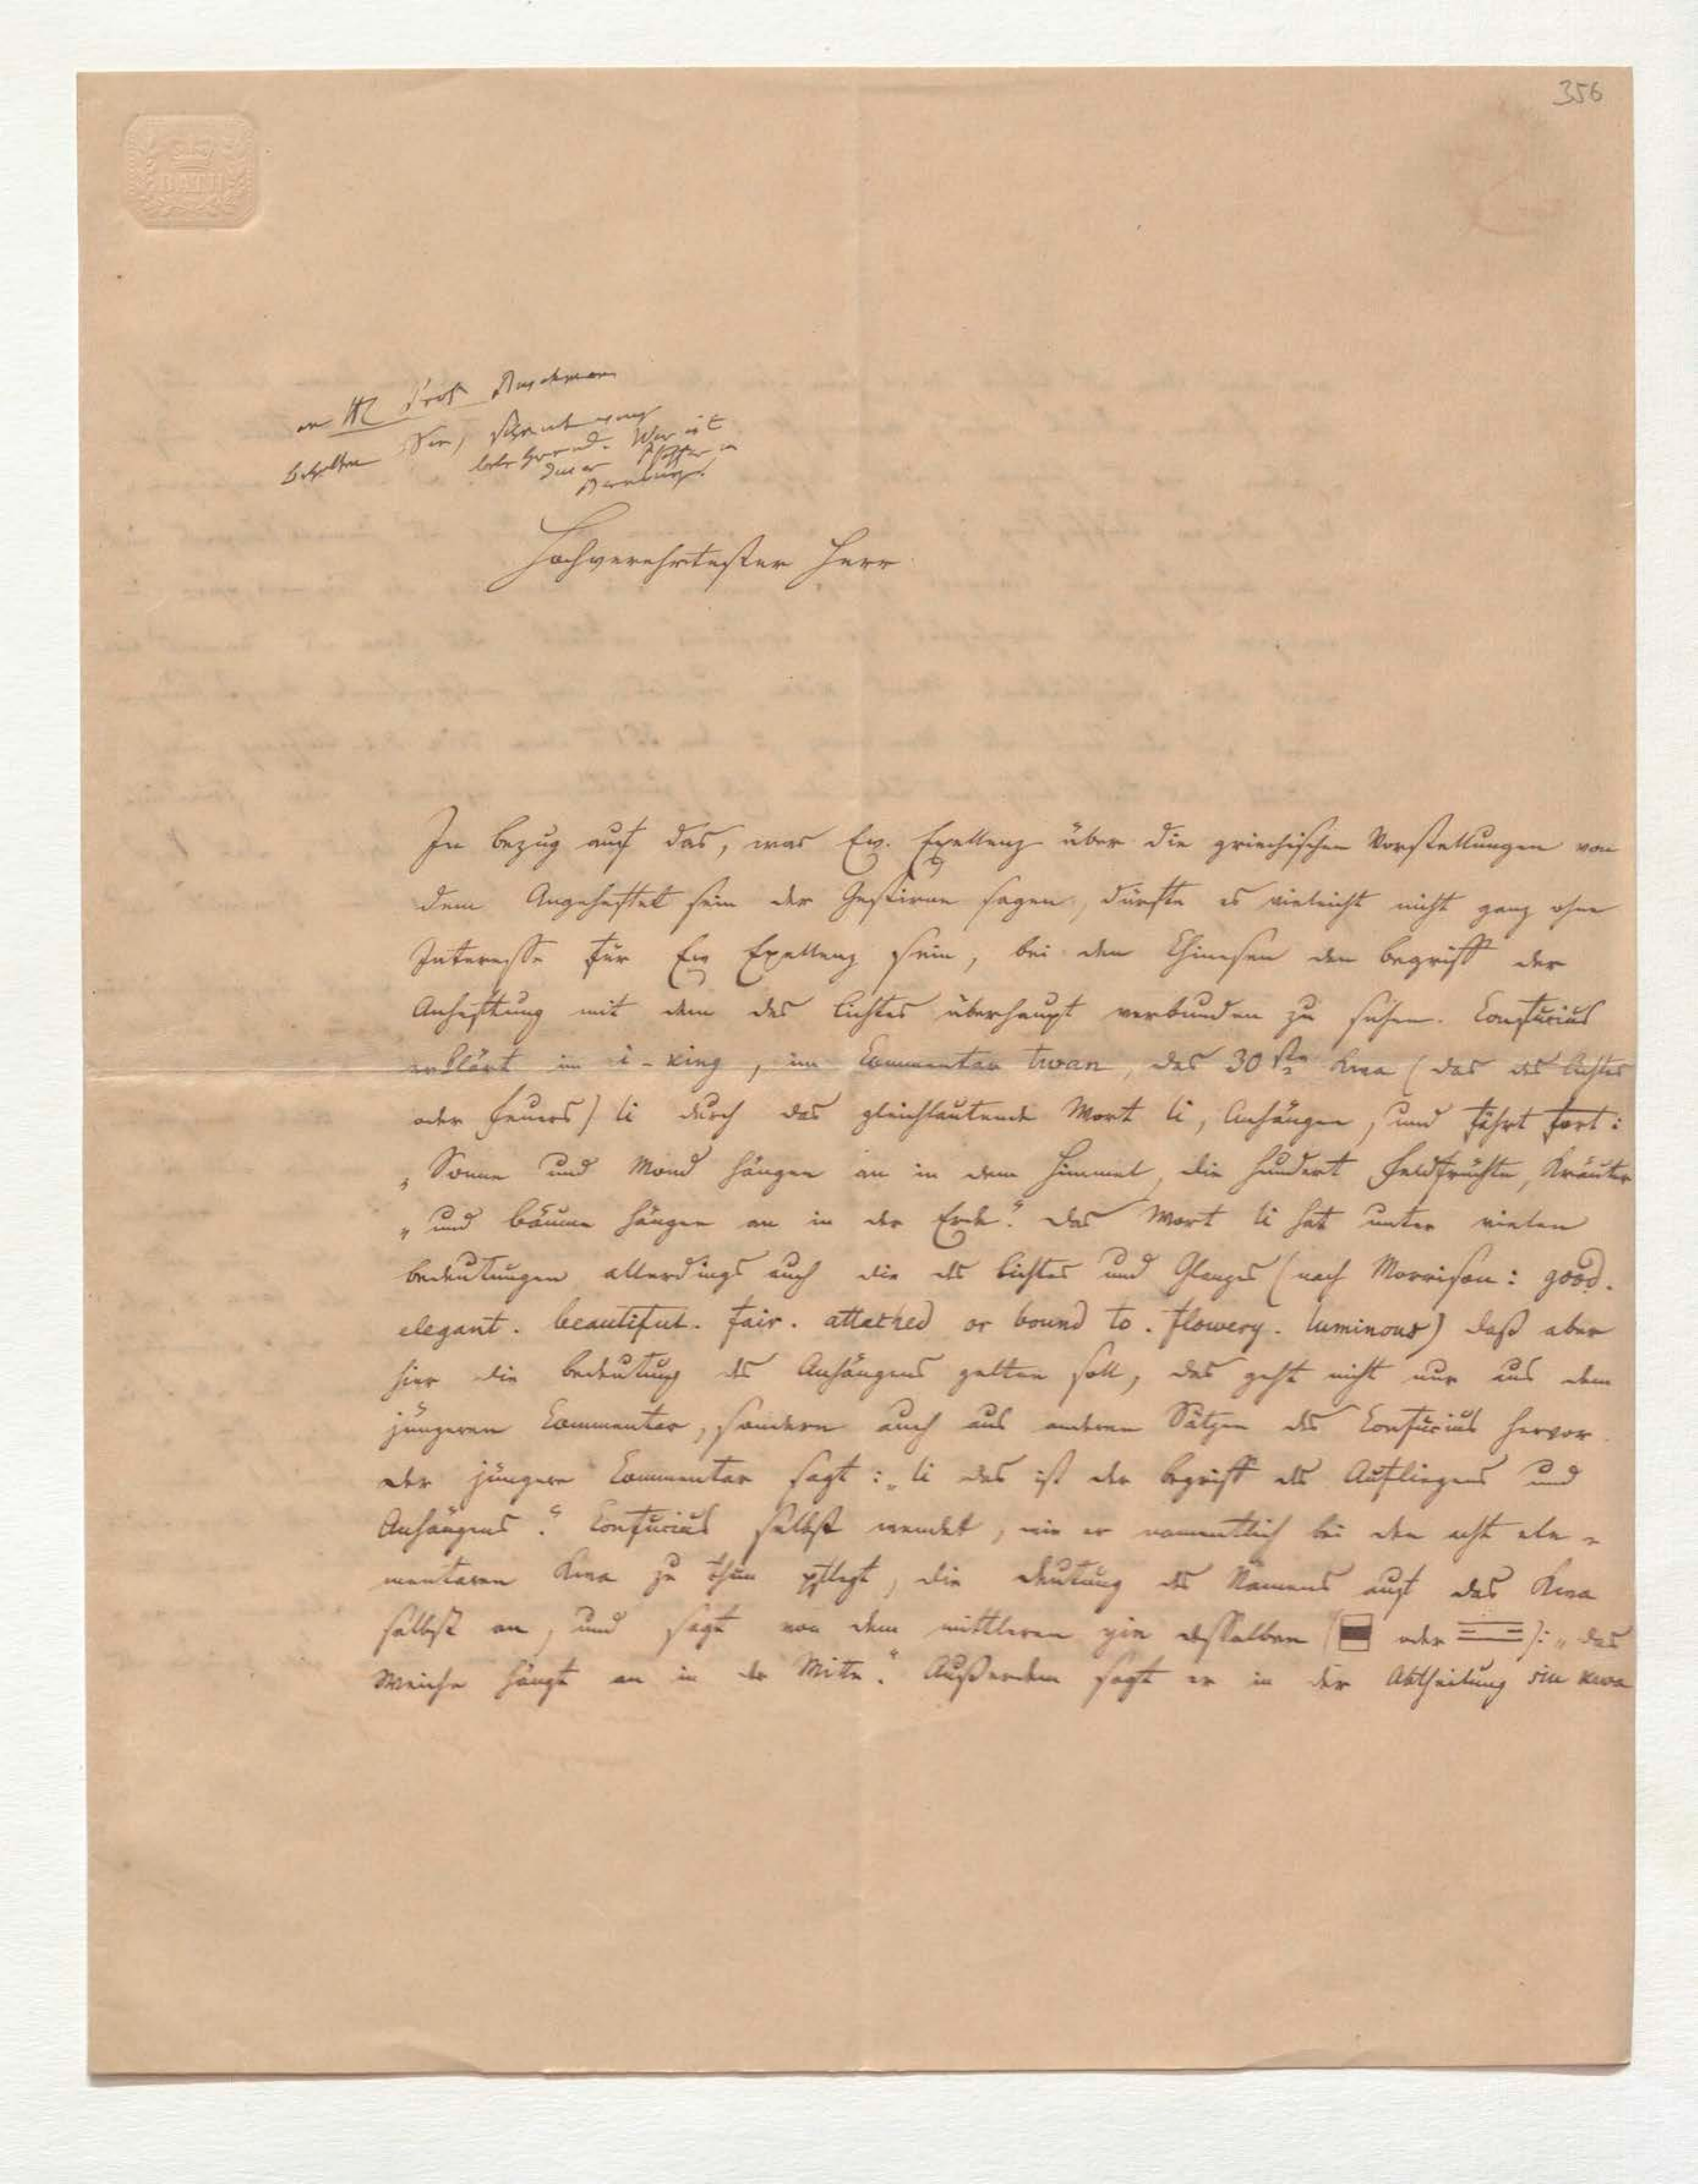 356
BATH
an H Prof Buschmann
behalten
Hochverehrtester Herr
In bezug auf das, was Ew. Exellenz über die griechischen Vorstellungen von
dem Angeheftet sein der Gestirne sagen, dürfte es vieleicht nicht ganz ohne
Interesse für Ew Exellenz sein, bei den Chinesen den begriff der
Anheftung mit dem des lichtes überhaupt verbunden zu sehen. Confucius
erklärt im i-king, im Commentar twan, das 30ste Kwa (das des lichtes
oder feuers) li durch das gleichlautende Wort li, Anhängen, und fährt fort:
„Sonne und Mond hängen an in dem Himmel, die hundert feldfrüchte, Kräuter
„und bäume hängen an in der Erde." das Wort li hat unter vielen
bedeutungen allerdings auch die des lichtes und Glanzes (nach Morrison: good.
elegant. beautiful. fair. attached or bound to. flowery. luminous) daß aber
hier die bedeutung des Anhängens gelten soll, das geht nicht nur aus dem
jüngeren Commentar, sondern auch aus anderen Sätzen des Confucius hervor.
der jüngere Commentar sagt: „li das ist der begriff des Aufliegens und
Anhängens." Confucius selbst wendet, wie er namentlich bei den acht ele-
mentaren Kwa zu thun pflegt, die deutung des Namens auf das Kwa
selbst an, und sagt von dem mittleren yin desselben ( oder ): „das
Weiche hängt an in der Mitte." Außerdem sagt er in der Abtheilung kwa